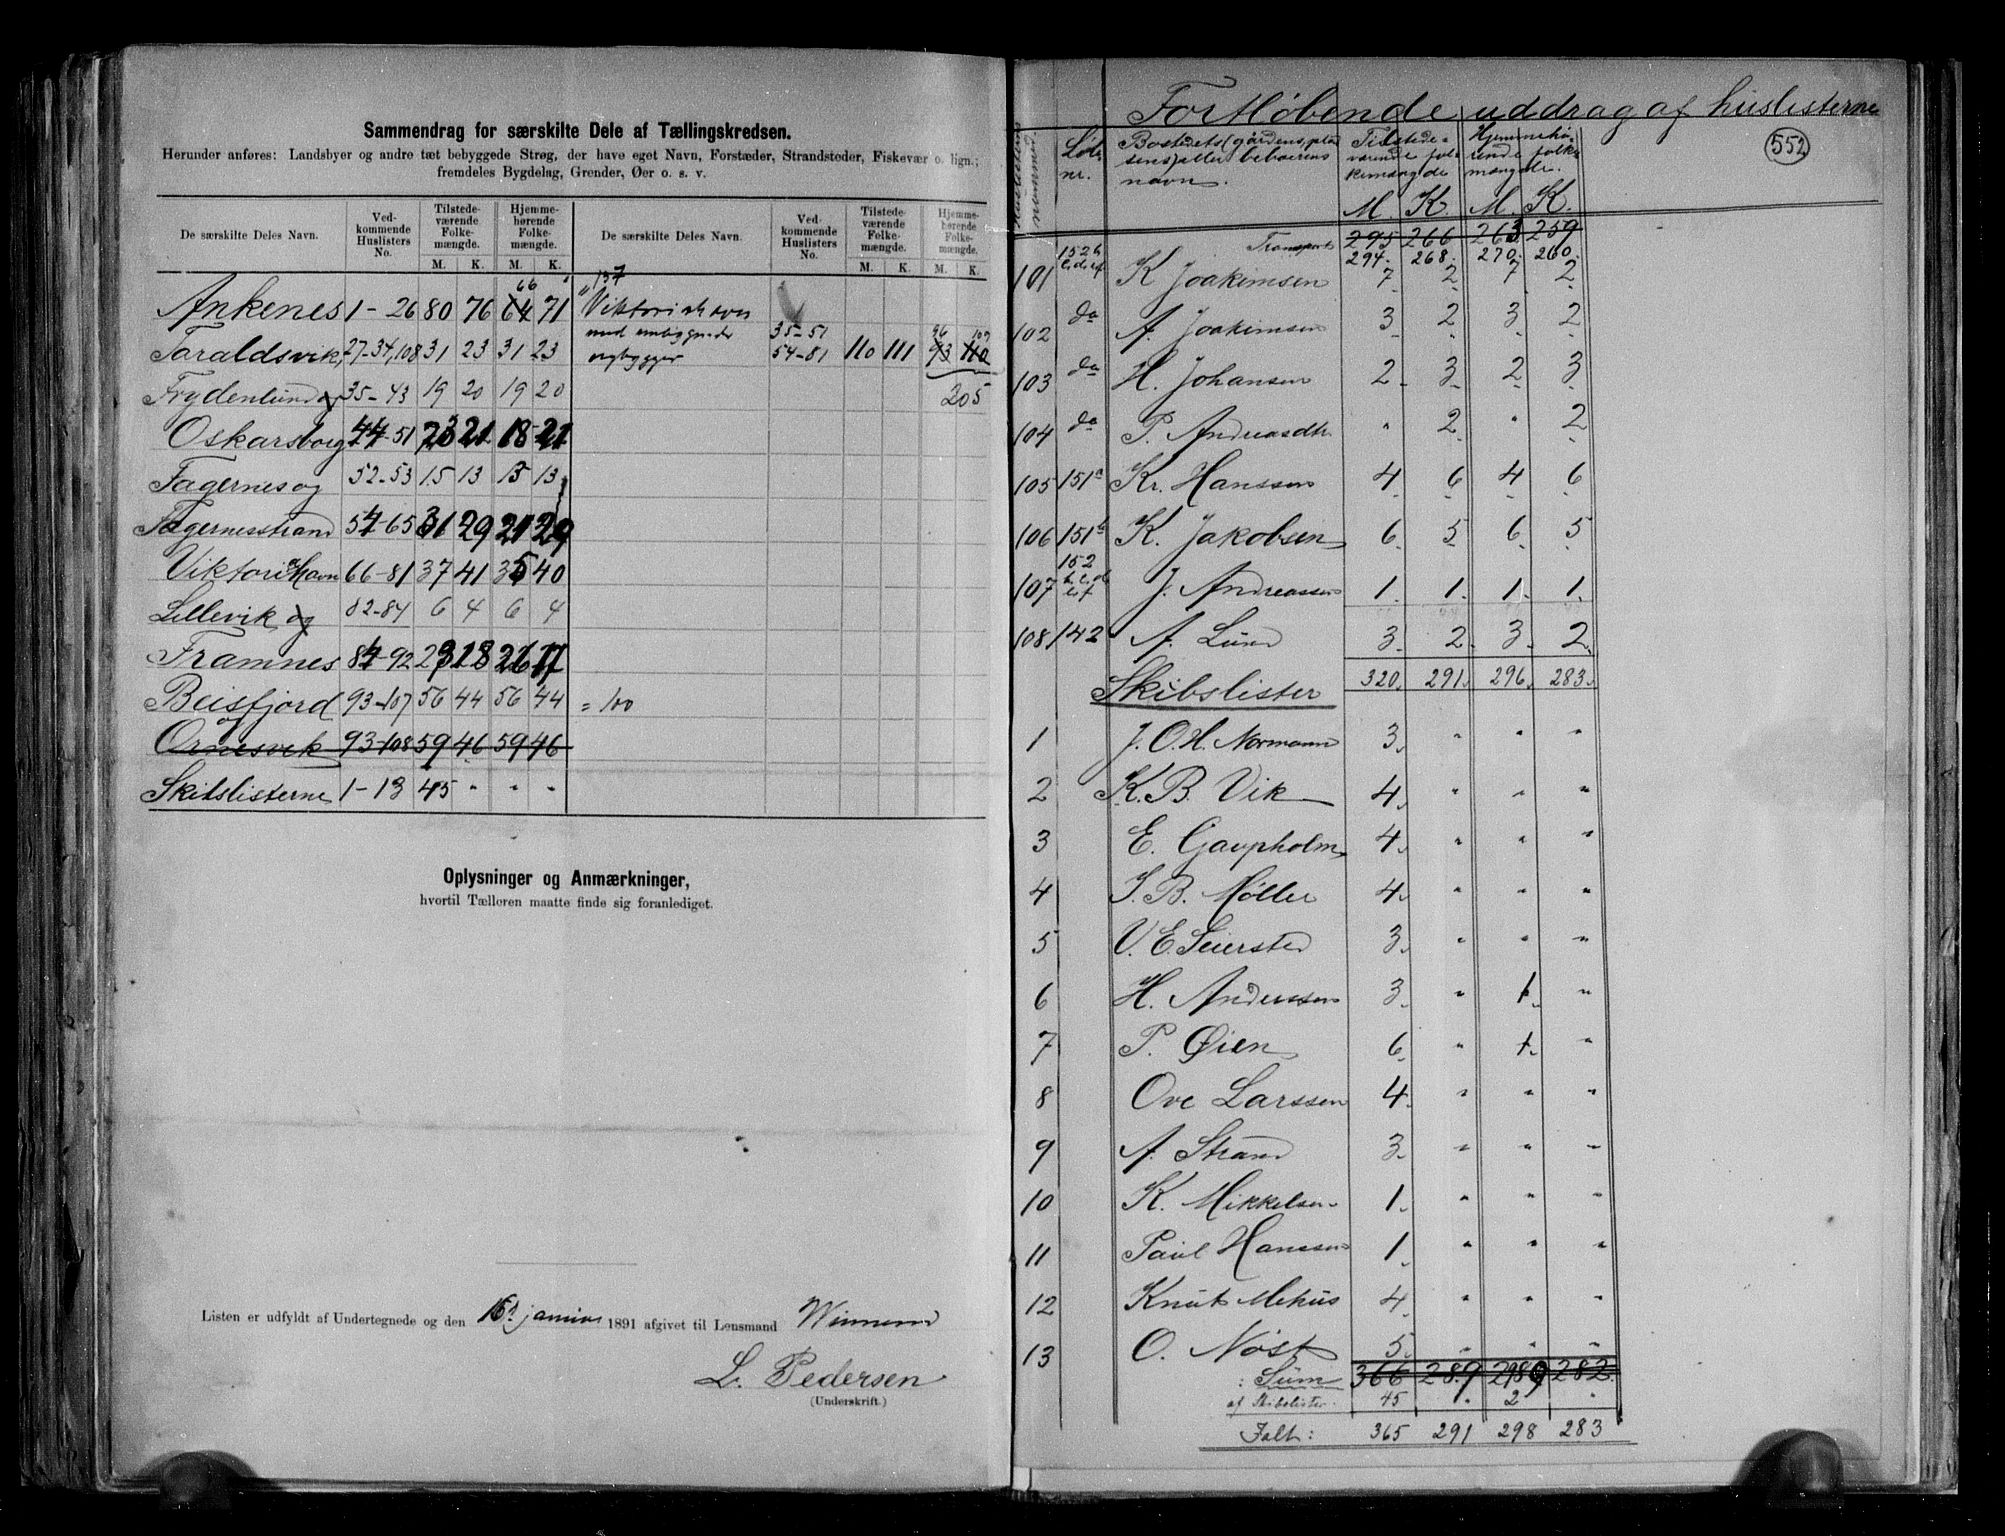 Sammendrag for særskilte Dele af Tællingskredsen.
Herunder anføres: Landsbyer og andre tæt bebyggede Strøg, der have eget Navn, Forstæder, Strandsteder, Fiskevær o. lign.;
fremdeles Bygdelag, Grender, Øer o. s. v.
De særskilte Deles Navn. Ved-kommende Huslisters No. Tilstede-værende Folke-mængde. Hjemme-hørende Folke-mængde. De særskilte Deles Navn. Ved-kommende Huslisters No. Tilstede-værende Folke-mængde. Hjemme-hørende Folke-mængde.
M. K. M. K. M. K. M. K.
66 " 137
Ankenes 1-26 80 76 64 71 Viktoriahavn
Taraldsvik, 27-34,108 31 23 31 23 med ombyggende 35-51 54-81 110 111 93 110
96 109
Frydenlund og 35-43 19 20 19 20 205
Oskarsborg 44-51 23 21 18 21
Fagernes og 52-53 15 13 15 13
Fagernesstrand 54-65 31 29 21 29
Viktoriahavn 66-81 37 41 35 40
Lillevik og 82-84 6 4 6 4
Framnes 84-92 23 18 26 17
Beisfjord 93-107 56 44 56 44 = 100
og
Ornesvik 93-108 59 46 59 46
Skibslisterne 1-13 45 " " "
Oplysninger og Anmærkninger,
hvortil Tælleren maatte finde sig foranlediget.
Listen er udfyldt af Undertegnede og den 16de januar 1891 afgivet til Lensmand
L. Pedersen
(Underskrift.)
Fortløbende uddrag af huslisterne
552
Huslistens nummer.
Løbe nr.
Bostedets (gårdens, pladsens) eller beboerens navn.
Tilstedeværende folkemængde
Hjemmehørende folkemængde.
M. K. M. K.
Transport 295 266 263 259
294 268 270 260
101 152 b c.d.e.f K Joakimsen 7 2 7 2
102 do A. Joakimsen 3 2 3 2
103 do H. Johansen 2 3 2 3
104 do P. Andreasdtr " 2 " 2
105 151a Kr. Hanssen 4 6 4 6
106 151b K. Jakobsen 6 5 6 5
107 152 b.c.d. e.f J. Andreassen 1 1 1 1
108 142 A. Lund 3 2 3 2
320 291 296 283
Skibslister
1 J. O. H. Normann 3 " " "
2 K. B. Vik 4 " " "
3 E. Gaupholm 4 " " "
4 J. B. Møller 4 " " "
5 V. E. Seiersted 3 " " "
6 H. Anderssen 3 " 1 "
7 P. Øien 6 " 1 "
8 Ove Larssen 4 " " "
9 A. Strand 3 " " "
10 K. Mikkelsen 1 " " "
11 Paul Hanssen 1 " " "
12 Knut Mehus 4 " " "
13 O. Nøst 5 " " "
Sum 366 289 298 282
af Skibslister 45 " 2 "
Ialt: 365 291 298 283